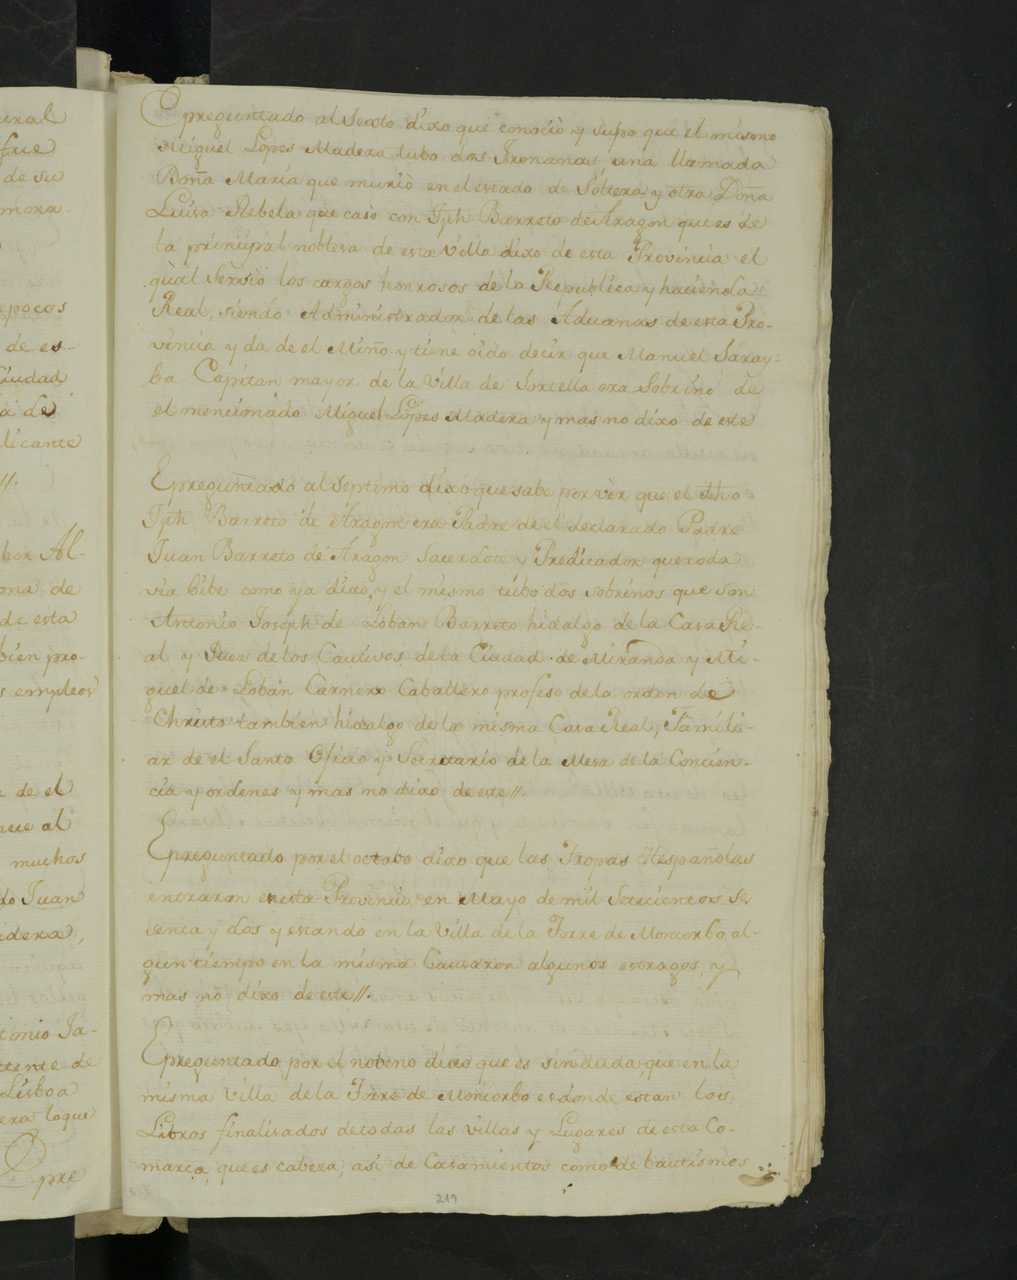 ural
fue
de su
mora-
pocos
de es-
Ciudad
ia de
licante
//.
bar Al-
ona de
de esta
bien pro-
s empleos
a de el
que al
muchos
do Juan
adera,
tonio Ja-
tente de
Lisboa
era loque
pre
Epreguntado al Sexto dixo que conociò y supo que el mismo
Miguel Lopes Madera tubo dos Irmanas una llamada
Doña Maria que muriò en el estado de Soltera y otra Doña
Luisa Rebela que casò con Jph Barreto de Aragon que es de
la principal noblesa de esta Villa dixo de esta Provincia el
qual Serviò los cargos honrosos de la Republica y hacienda
Real, siendo Administrador de las Aduanas de esta Pro-
vincia y da de el Miño y tiene oido decir que Manuel Saray-
ba Capitan mayor de la Villa de Sortella era Sobrino de
el mencionado Miguel Lopes Madera y mas no dixo de este
Epreguntado al Septimo dixo que sabe por ver que el dho
Jph Barreto de Aragon era Padre de el declarado Padre
Juan Barreto de Aragon Sacerdote y Predicador que toda
via bibe como ya dixo, y el mismo tubo dos sobrinos que son
Antonio Joseph de Loban Barreto hidalgo de la Casa Re-
al y Juez de los Cautivos de la Ciudad de Miranda y Mi-
guel de Loban Carnero Caballero profeso de la orden de
Christo tambien hidalgo de la misma Casa Real, Famili-
ar de el Santo Oficio y Secretario de la Mesa de la Concien-
cia y ordenes y mas no dixo de este //.
Epreguntado por el octabo dixo que las Tropas Hespañolas
entraron en esta Provincia en Mayo de mil Setecientos Se-
senta y dos y estando en la Villa de la Torre de Moncorbo, al-
gun tiempo en la misma Causaron algunos estragos, y
mas no dixo de este //.
Epreguntado por el nobeno dixo que es sin duda, que en la
misma Villa de la Torre de Moncorbo es donde estan los
Libros finalisados de todas las villas y Lugares de esta Co-
marca, que es cabeza, asi de Casamientos como de bautismos
219